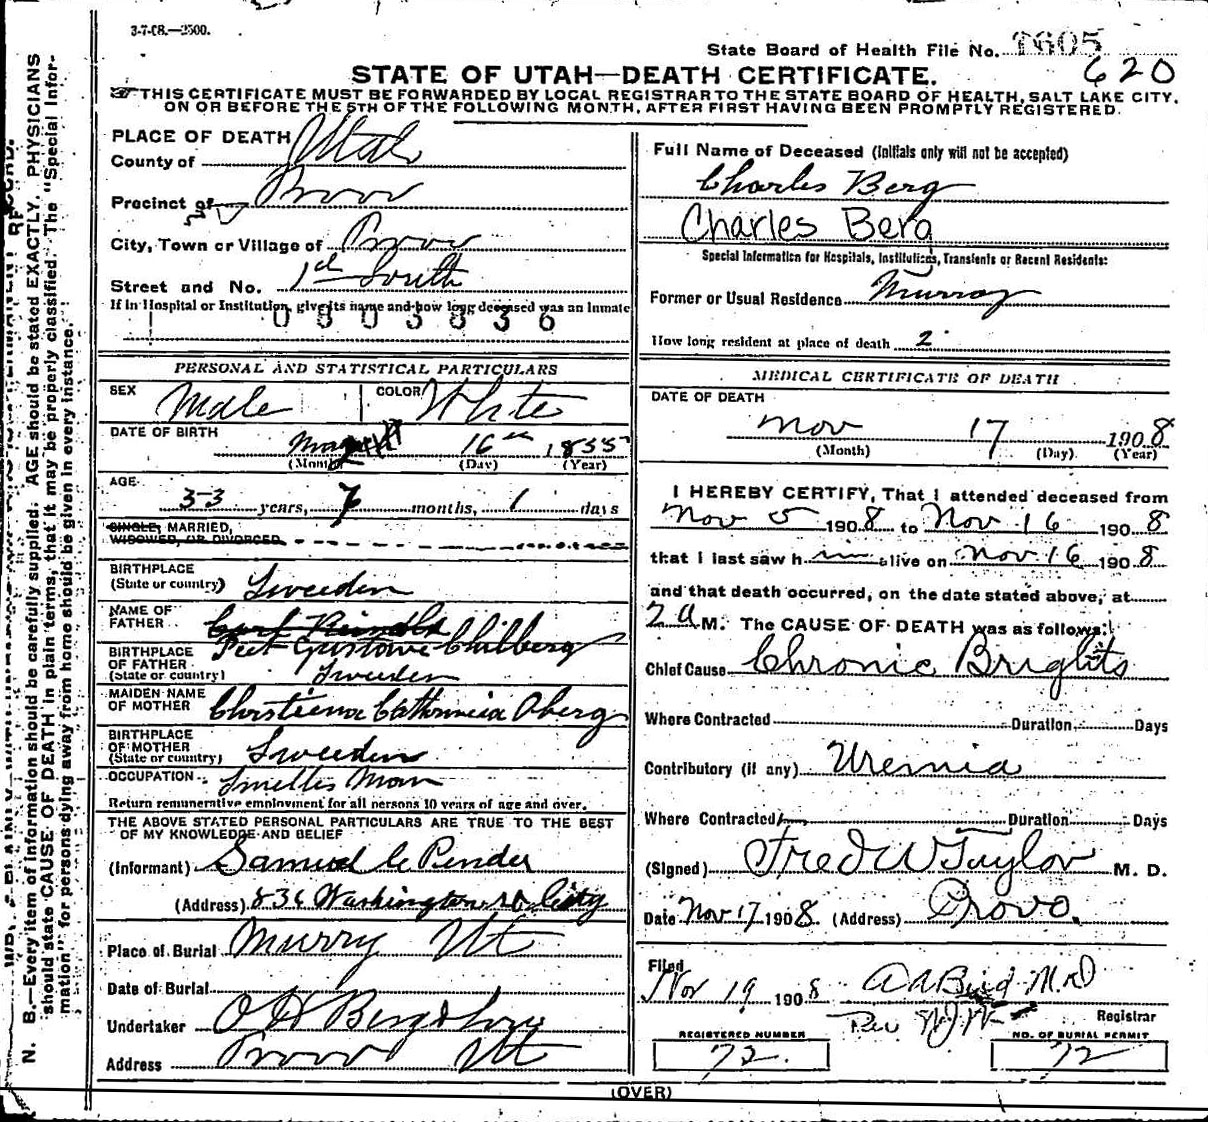 3-7-08.—2500.
State Board of Health File No. 1605
620
STATE OF UTAH—DEATH CERTIFICATE.
THIS CERTIFICATE MUST BE FORWARDED BY LOCAL REGISTRAR TO THE STATE BOARD OF HEALTH, SALT LAKE CITY,
ON OR BEFORE THE 5TH OF THE FOLLOWING MONTH, AFTER FIRST HAVING BEEN PROMPTLY REGISTERED.
PLACE OF DEATH
County of Utah
Precinct of Provo
City, Town or Village of Provo
Street and No. 1st South
If in Hospital or Institution, give its name and how long deceased was an Inmate
0303836
PERSONAL AND STATISTICAL PARTICULARS
SEX Male COLOR White
DATE OF BIRTH
16th 1855
(Month) (Day) (Year)
AGE
53 years, 7 months, 1 days
SINGLE, MARRIED,
WIDOWED, OR DIVORCED
BIRTHPLACE
(State or country) Sweeden
NAME OF
FATHER Peet Gustave Chilberg
BIRTHPLACE
OF FATHER
(State or country) Sweeden
MAIDEN NAME
OF MOTHER Christiena Catherinia Oberg
BIRTHPLACE
OF MOTHER
(State or country) Sweeden
OCCUPATION Smelter Man
Return remunerative employment for all persons 10 years of age and over.
THE ABOVE STATED PERSONAL PARTICULARS ARE TRUE TO THE BEST
OF MY KNOWLEDGE AND BELIEF
(Informant) Samuel C Pender
(Address) 836 Washington City
Place of Burial Murry Ut
Date of Burial
Undertaker O H Berg &
Address Provo Ut
Full Name of Deceased (Initials only will not be accepted)
Charles Berg
Charles Berg
Special Information for Hospitals, Institutions, Transients or Recent Residents:
Former or Usual Residence Murray
How long resident at place of death 2
MEDICAL CERTIFICATE OF DEATH
DATE OF DEATH
Nov 17 1908
(Month) (Day) (Year)
I HEREBY CERTIFY, That I attended deceased from
Nov 5 1908 to Nov 16 1908
that I last saw him alive on Nov 16 1908
and that death occurred, on the date stated above, at
2 a M. The CAUSE OF DEATH was as follows:
Chief Cause Chronic Brights
Where Contracted Duration Days
Contributory (if any) Uremia
Where Contracted Duration Days
(Signed) Fred W Taylor M. D.
Date Nov 17 1908 (Address) Provo.
Filed
Nov 19 1908 Bird M.D
Registrar
REGISTERED NUMBER NO. OF BURIAL PERMIT
72. 72
(OVER)
N. B.—Every item of information should be carefully supplied. AGE should be stated EXACTLY. PHYSICIANS
should state CAUSE OF DEATH in plain terms, that it may be properly classified. The "Special Infor-
mation" for persons dying away from home should be given in every instance.